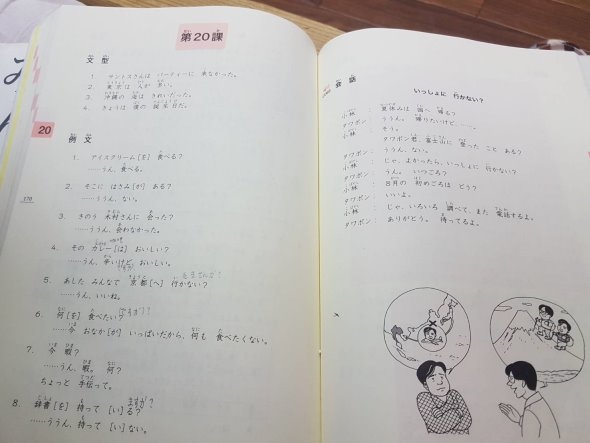 第20課
文型
1. サントスさんは パーティーに 来なかった。
2. 東京は 人が 多い。
3. 沖縄の 海は きれいだった。
4. きょうは 僕の 誕生日だ。
20
例文
1. アイスクリーム [を] 食べる？
……うん、食べる。
2. そこに はさみ [が] ある？
……ううん、ない。
170
3. きのう 木村さんに 会った？
……ううん、会わなかった。
4. その カレー [は] おいしい？
……うん、辛いけど、おいしい。
5. あした みんなで 京都 [へ] 行かない？
……うん、いいね。
6. 何 [を] 食べたい？ ですか？
……今 おなか [が] いっぱいだから、何も 食べたくない。
7. 今 暇？
……うん、暇。何？
ちょっと 手伝って。
8. 辞書 [を] 持って [い] る？ ますか？
……ううん、持って [い] ない。
会話
いっしょに 行かない？
小林 ： 夏休みは 国へ 帰る？
タワポン： ううん。帰りたいけど、……。
小林 ： そう。
タワポン君、富士山に 登った こと ある？
タワポン： ううん、ない。
小林 ： じゃ、よかったら、いっしょに 行かない？
タワポン： うん。いつごろ？
小林 ： 8月の 初めごろは どう？
タワポン： いいよ。
小林 ： じゃ、いろいろ 調べて、また 電話するよ。
タワポン： ありがとう。待ってるよ。